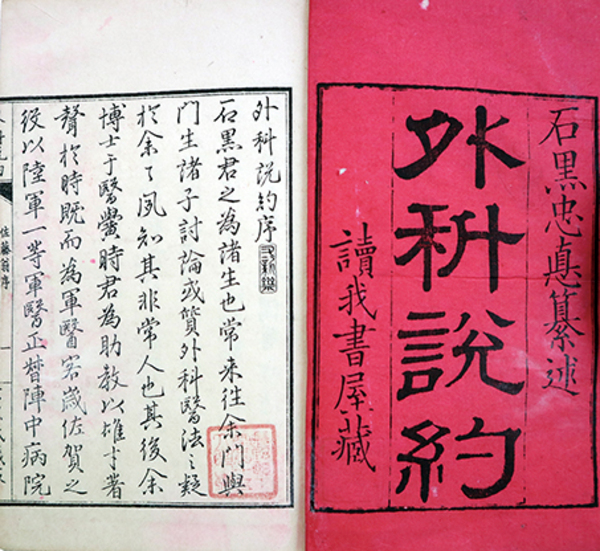 石黒忠悳纂述
外科說約
讀我書屋藏
外科說約序
石黒君之為諸生也常来往余門與
門生諸子討論或質外科醫法之疑
於余々夙知其非常人也其後余
博士于醫黌時君為助教以雄才著
聲於時既而為軍醫客歳佐賀之
役以陸軍一等軍醫正督陣中病院
佐藤翁序
一